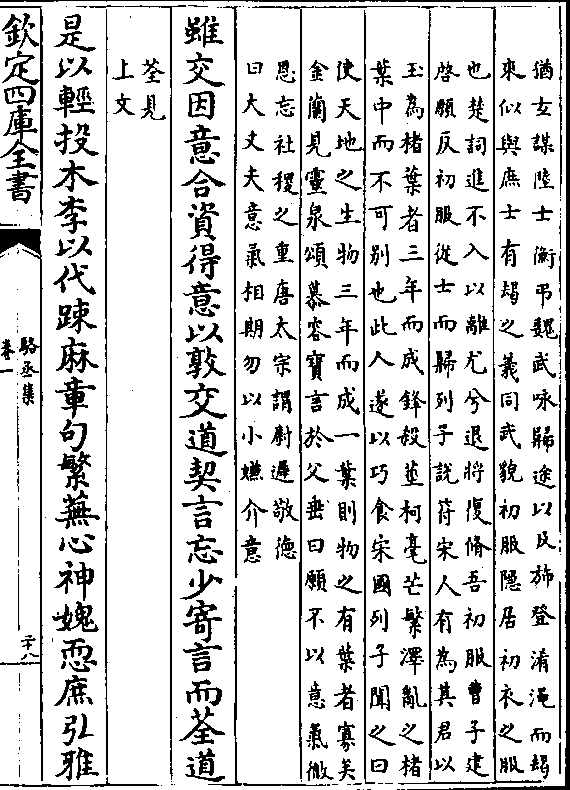 猶女謀陸士衡弔魏武咏歸途以反旆登淆澠而朅
來似與庶士有朅之義同武貌初服隱居初衣之服
也楚詞進不入以離尤兮退將復脩吾初服曹子建
啓願反初服從士而歸列子說符宋人有為其君以
玉為楮葉者三年而成鋒殺莖柯毫芒繁澤亂之楮
葉中而不可别也此人遂以巧食宋國列子聞之曰
使天地之生物三年而成一葉則物之有葉者寡矣
金蘭見靈泉頌慕容寶言於父垂曰願不以意氣微
恩忘社稷之重唐太宗謂尉遲敬德
曰大丈夫意氣相期勿以小嫌介意
雖交因意合資得意以敦交道契言忘少寄言而荃道
荃見
上文
是以輕投木李以代踈麻章句繁蕪心神媿恧庶引雅
欽定四庫全書
駱丞集
卷一
二十八